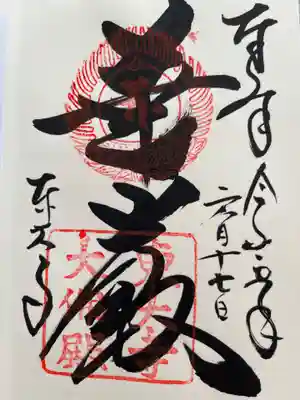 奉拝
令和五年
六月十七日
華厳
東大寺
東大寺
大佛殿